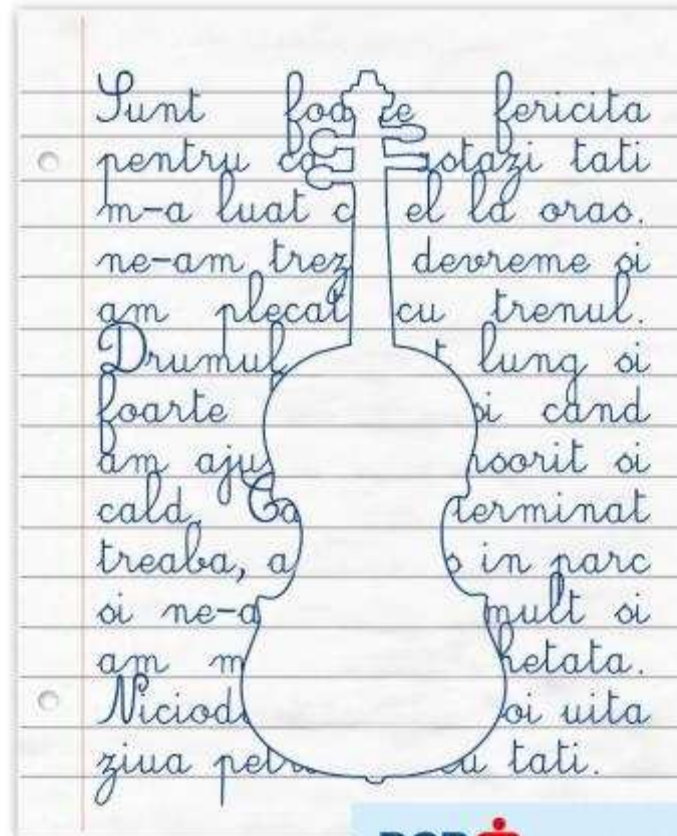 Sunt foarte fericita
pentru ca astazi tati
m-a luat cu el la oras.
ne-am trez devreme si
am plecat cu trenul.
Drumul lung si
foarte si cand
am aju nsorit si
cald. Ca terminat
treaba, a s in parc
si ne-a mult si
am m hetata.
Niciod oi uita
ziua petr cu tati.